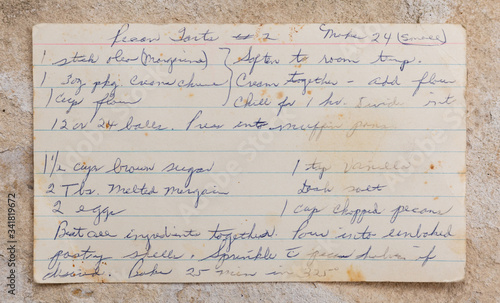 Pecan Tarts # 2 Make 24 (small)
1 stick oleo (Margerine) } Soften to room temp.
1 3oz pkg Cream cheese } Cream together - add flour
1 cup flour Chill for 1 hr. Divide int
12 or 24 balls. Press into muffin pans
1 1/2 cups brown sugar 1 tsp Vanilla
2 Tbs. Melted Margarin dash salt
2 eggs 1 cup chopped pecans
Beat all ingredients together. Pour into unbaked
pastry shells. Sprinkle pecan halves if
desired. Bake 25 min in 325